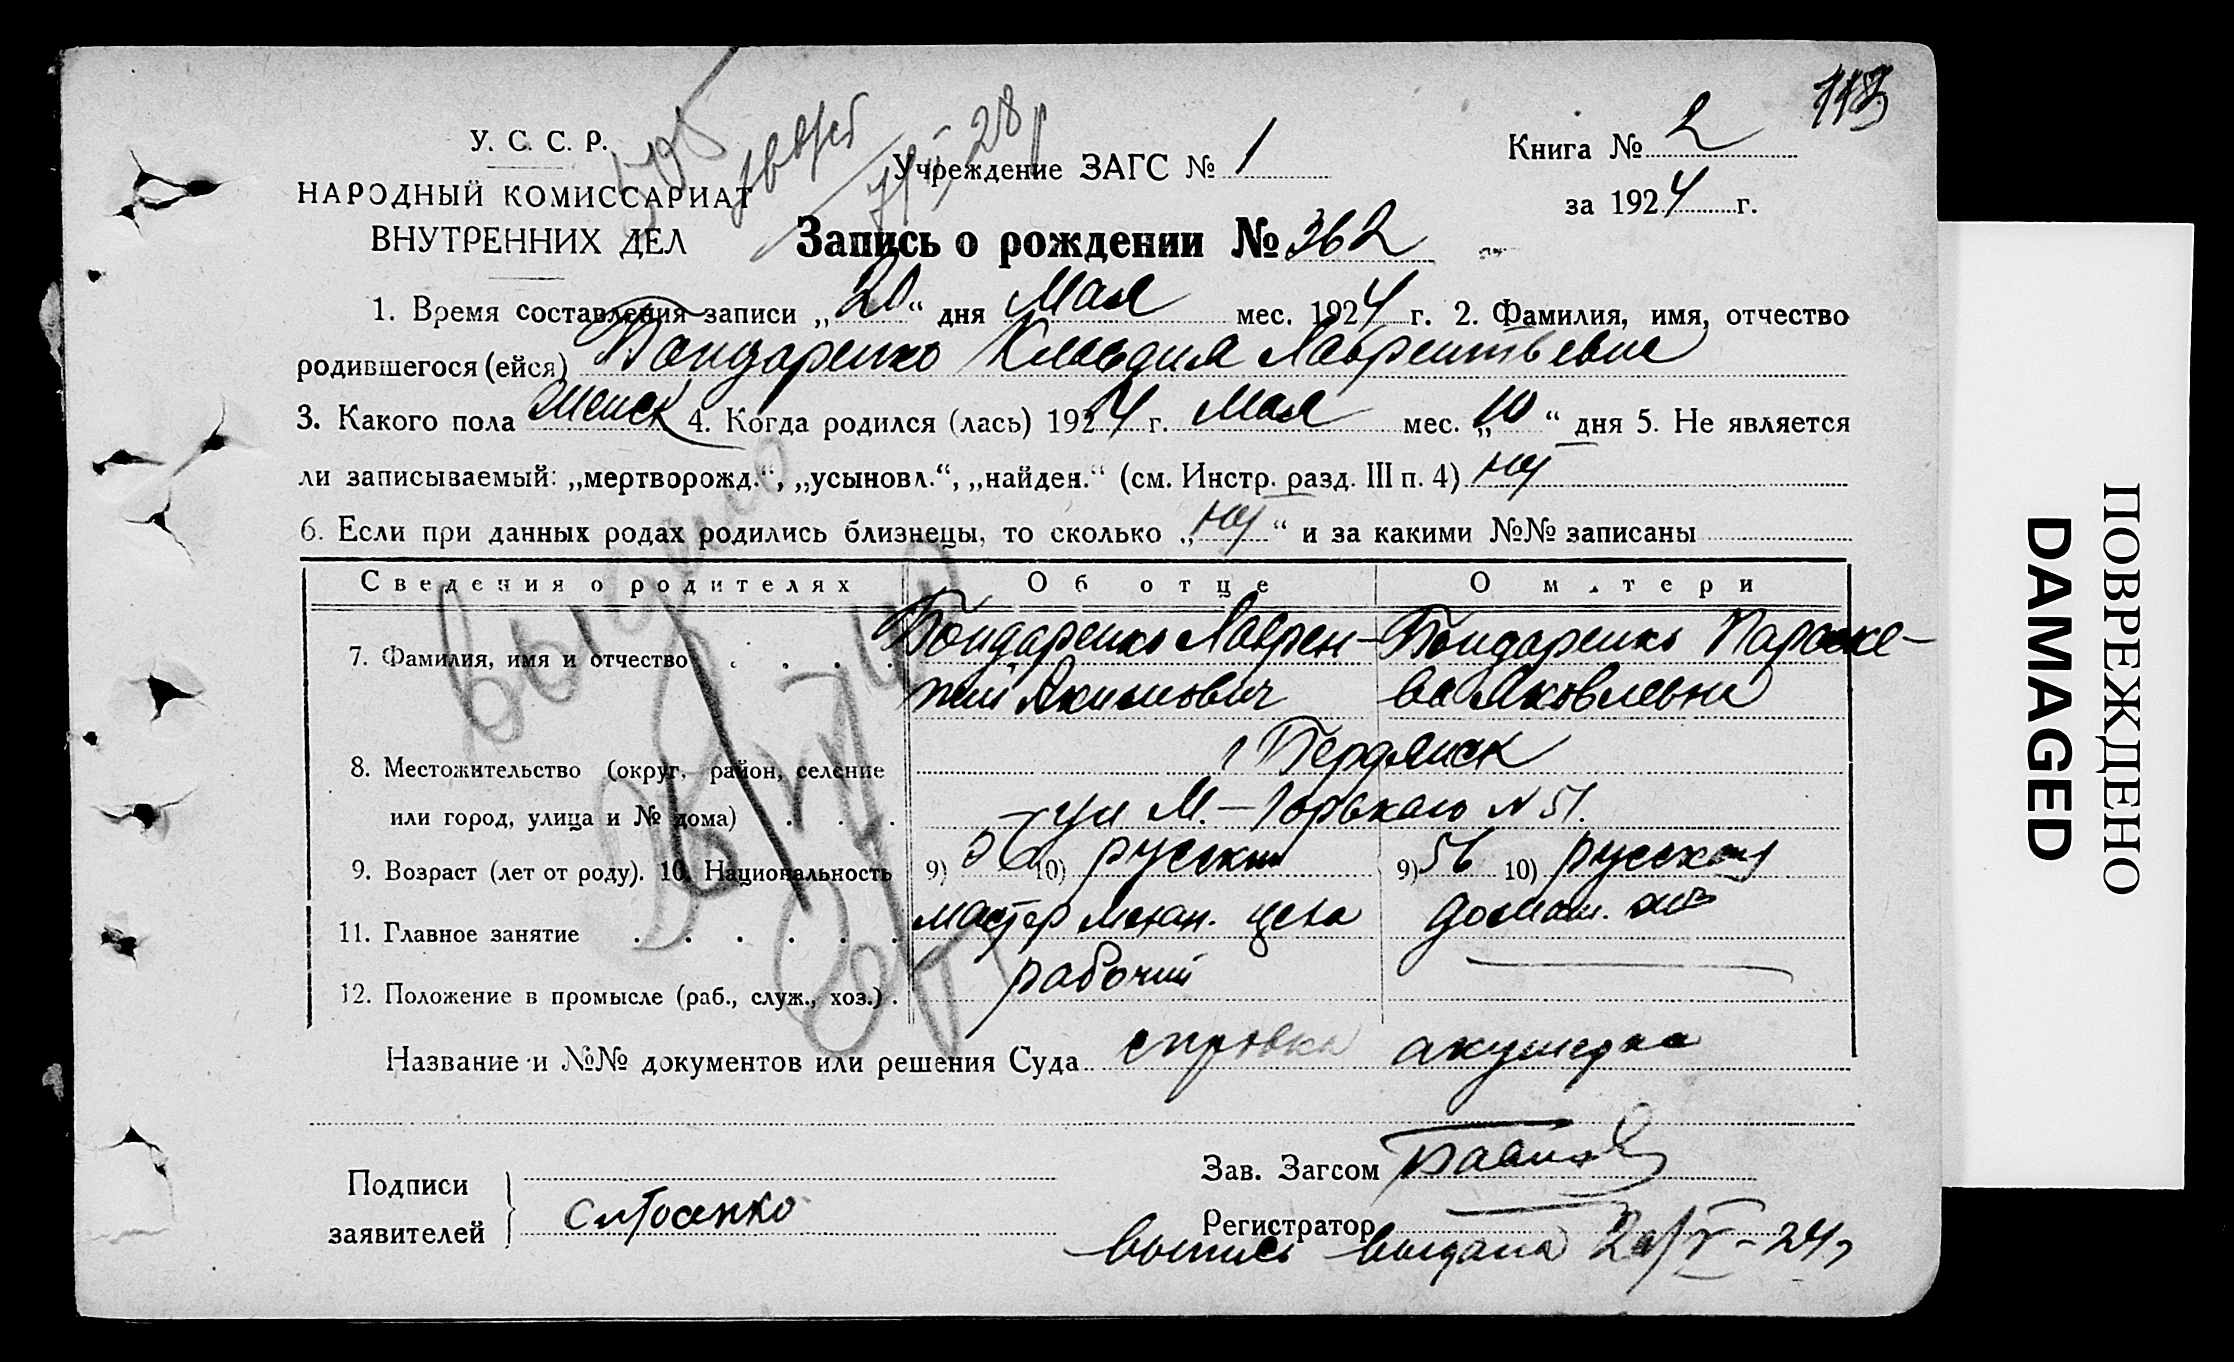 113
У. С. С. Р.
НАРОДНЫЙ КОМИССАРИАТ
ВНУТРЕННИХ ДЕЛ
Учреждение ЗАГС № 1
Книга № 2
за 1924 г.
Запись о рождении № 362
1. Время составления записи „20“ дня Мая мес. 1924 г. 2. Фамилия, имя, отчество
родившегося (ейся) Бондаренко Клавдия Лаврентьевна
3. Какого пола женск 4. Когда родился (лась) 1924 г. Мая мес. „10“ дня 5. Не является
ли записываемый: „мертворожд.“, „усыновл.“, „найден.“ (см. Инстр. разд. III п. 4) нет
6. Если при данных родах родились близнецы, то сколько „нет“ и за какими №№ записаны
Сведения о родителях Об отце О матери
7. Фамилия, имя и отчество Бондаренко Лаврен- Бондаренко Параске-
тий Якимович ва Яковлевна
8. Местожительство (округ, район, селение г Бердянск
или город, улица и № дома) ул М.-Горького N 51.
9. Возраст (лет от роду). 10. Национальность 9) 10) русский 9) 10) русская
11. Главное занятие мастер механ. цеха домаш.
12. Положение в промысле (раб., служ., хоз.) рабочий
Название и №№ документов или решения Суда справка акушерка
Подписи
заявителей
Зав. Загсом
Регистратор
выпись выдана 20/V-24г
выдано
ПОВРЕЖДЕНО
DAMAGED